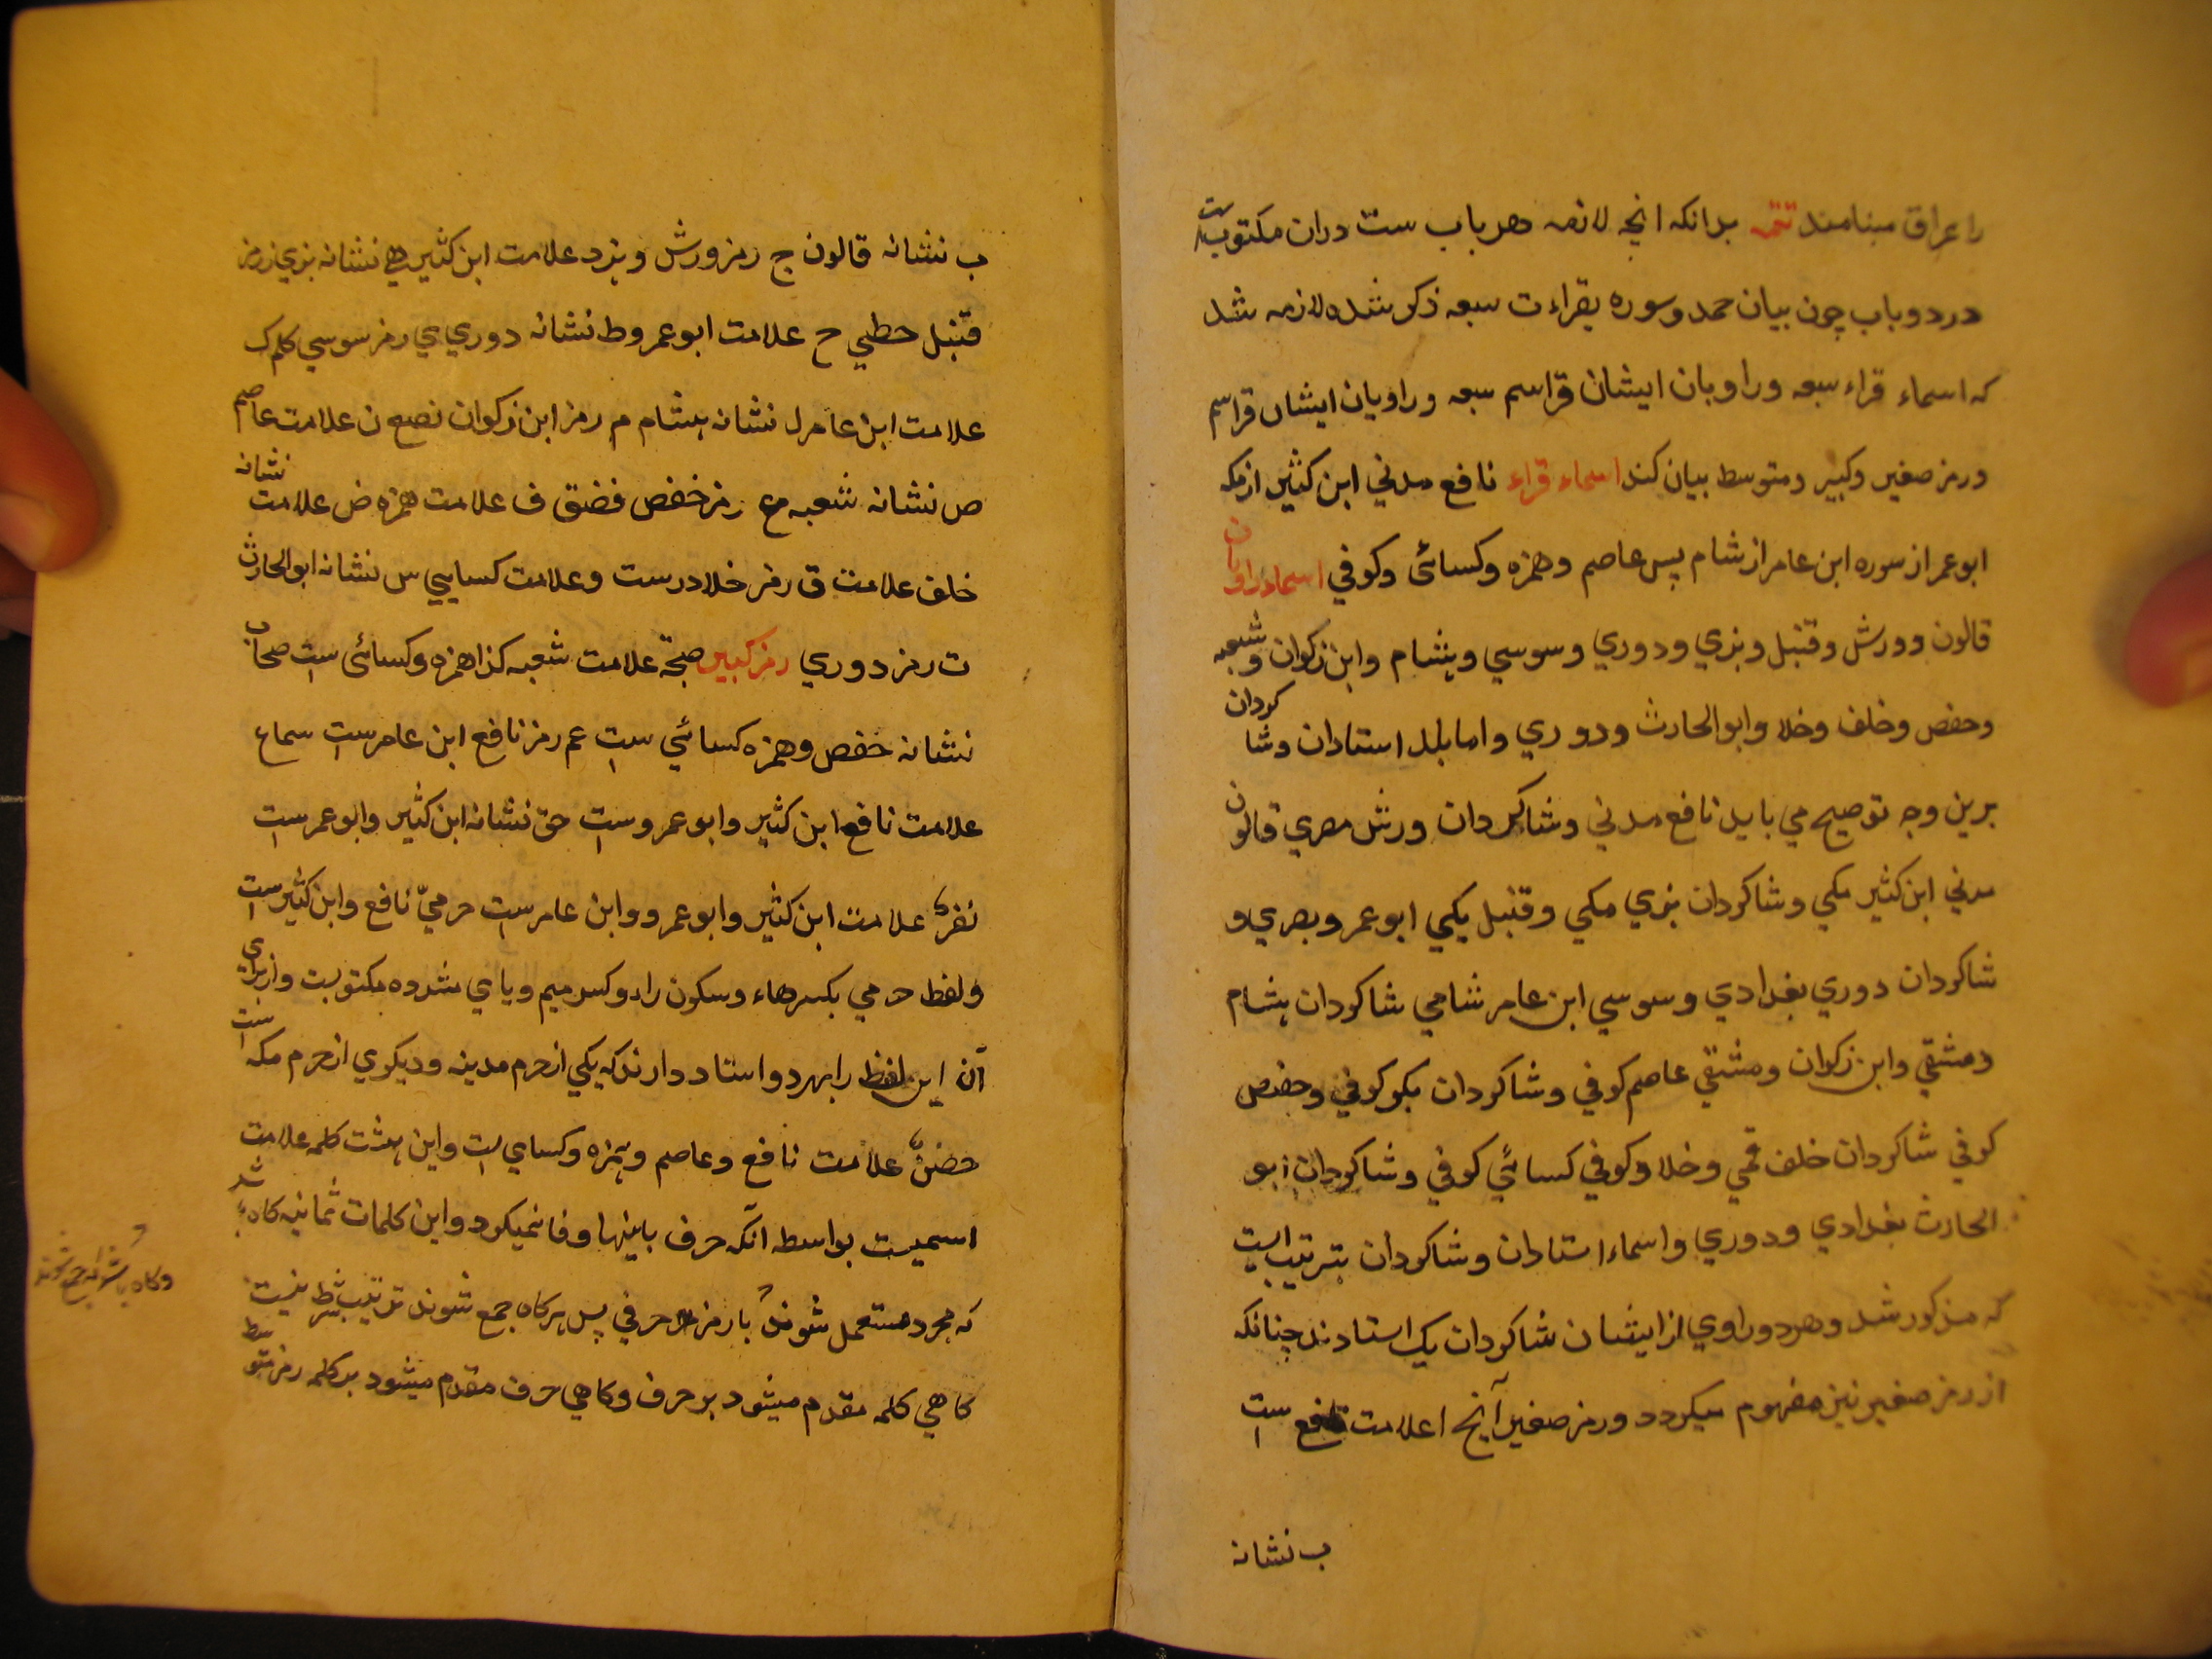 را عراق مینامند تتمه بدانکه انچه لازمه هر باب ست دران مکتوبست
در دو باب چون بیان حمد و سوره بقراءت سبعه ذکر شده لازمه شد
که اسماء قراء سبعه و راویان ایشان قرا سم سبعه و راویان ایشان قراسم
و رمز صغیر و کبیر و متوسط بیان کند اسماء قراء نافع مدني ابن کثیر از مکه
ابو عمر از سوره ابن عامر از شام پس عاصم و همزه و کسائی و کوفي اسماء راویان
قالون و ورش و قنبل و بزي و دوري و سوسي و هشام و ابن زکوان و شعبه
و حفص و خلف و خلا و ابو الحارث و دوري و اما بلد استادان و شاکردان
برین وجه توصیح مي باید نافع مدني و شاکردان ورش مصري قالون
مدني ابن کثیر مکي و شاکردان بزي مکي و قنبل یکي ابو عمرو بصري و
شاکردان دوري بغدادي و سوسي ابن عامر شامي شاکردان هشام
دمشقي و ابن زکوان ومشقي عاصم کوفي و شاکردان بکو کوفي و حفص
کوفي شاکردان خلف قمي و خلا و کوفي کسائي کوفي و شاکردان ابو
الحارث بغدادي و دوري و اسماء استادان و شاکردان بترتیب است
که مذکور شد و هر دو راوي از ایشان شاکردان یک استادند چنانکه
از رمز صغیر نیز مفهوم میکردد و رمز صغیر آنچ ا علامت نافع است
ب نشانه
ب نشانه قالون ج رمز ورش و بزد علامت ابن کثیر ه نشانه بزي ز رمز
قنبل حطي ح علامت ابو عمرو ط نشانه دوري ي رمز سوسي کلم ک
علامت ابن عامر ل نشانه هشام م رمز ابن زکوان نصع ن علامت عاصم
ص نشانه شعبه ع رمز حفص فضق ف علامت همزه ض علامت نشانه
خلف علامت ق رمز خلادرست و علامت کسایي س نشانه ابو الحارث
ت رمز دوري رمز کبیر صحبة علامت شعبه کذا همزه و کسائی ست صحاب
نشانه حفص و همزه کسائي ست عم رمز نافع ابن عامر ست سماع
علامت نافع ابن کثیر و ابو عمرو ست حق نشانه ابن کثیر و ابو عمر ست
نفر علامت ابن کثیر و ابو عمرو و ابن عامر ست حرميّ نافع و ابن کثیر ست
و لفظ حرمي بکسر هاء و سکون را و کسر میم و یای مشدده مکتوبست و از برای
آن این لفظ را بهر دو استاد دارند که یکي از حرم مدینه و دیکري از حرم مکه است
حصنٌ علامت نافع و عاصم و همزه و کسای ست و این هشت کلمه علامت
اسمیست بواسطه آنکه حرف باینها وفا نمیکرد و این کلمات ثمانیه کاه باشد
که مجرد مستعمل شوند با رمز حرفي پس هرکاه جمع شوند ترتیب شرط نیست
کاهي کلمه مقدم میشود بر حرف و کاهي حرف مقدم میشود بر کلمه رمز متوسط
و کاه باشد که جمع شوند